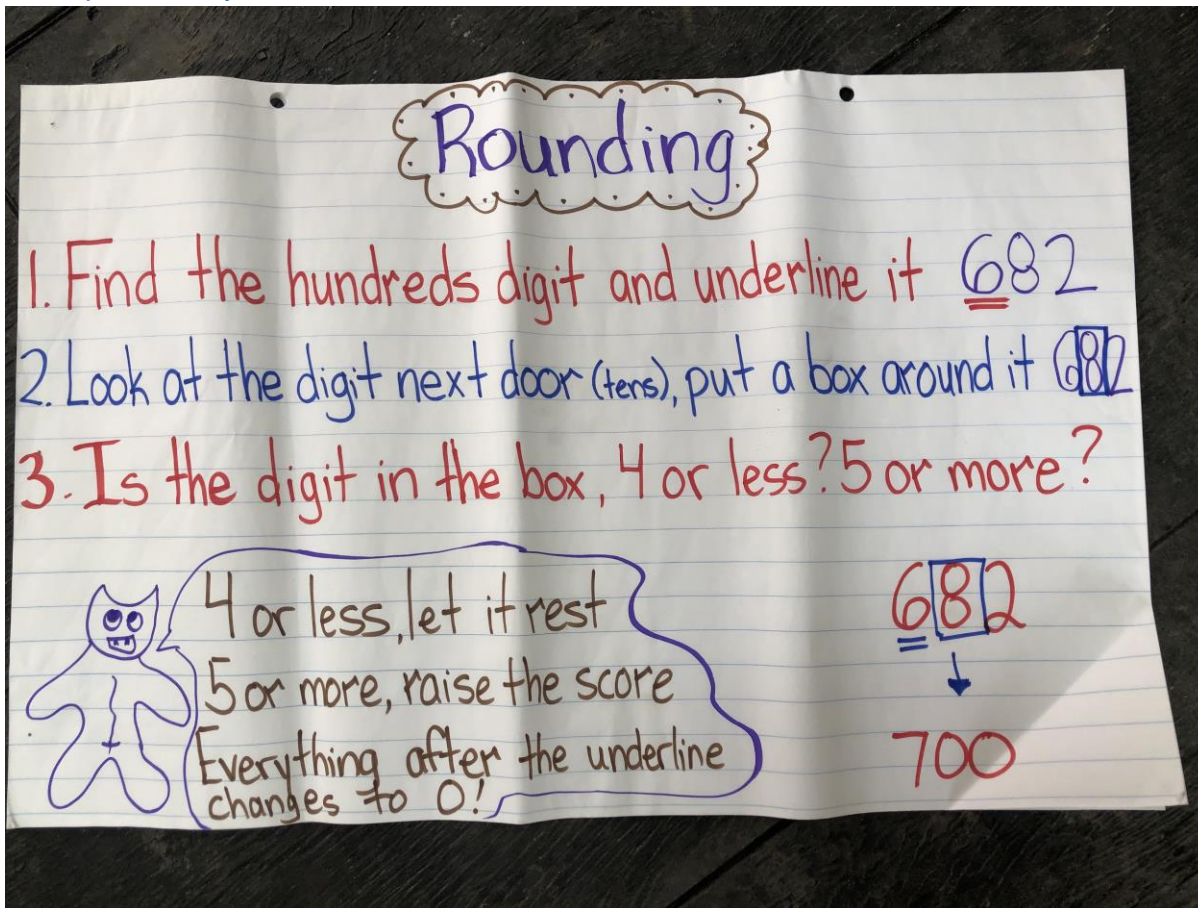 Rounding
1. Find the hundreds digit and underline it 682
2. Look at the digit next door (tens), put a box around it 682
3. Is the digit in the box, 4 or less? 5 or more?
4 or less, let it rest
5 or more, raise the score
Everything after the underline
changes to 0!
682
700